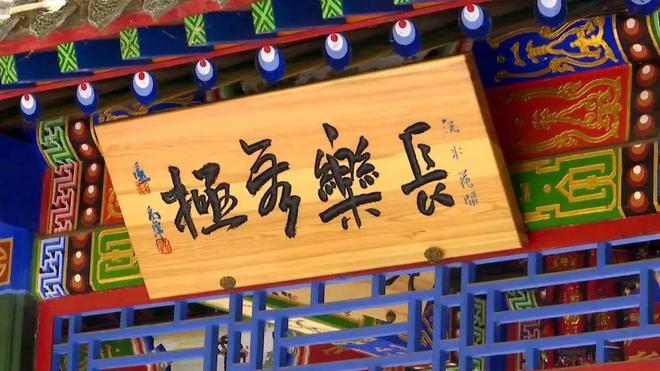 流水花開
長樂無極